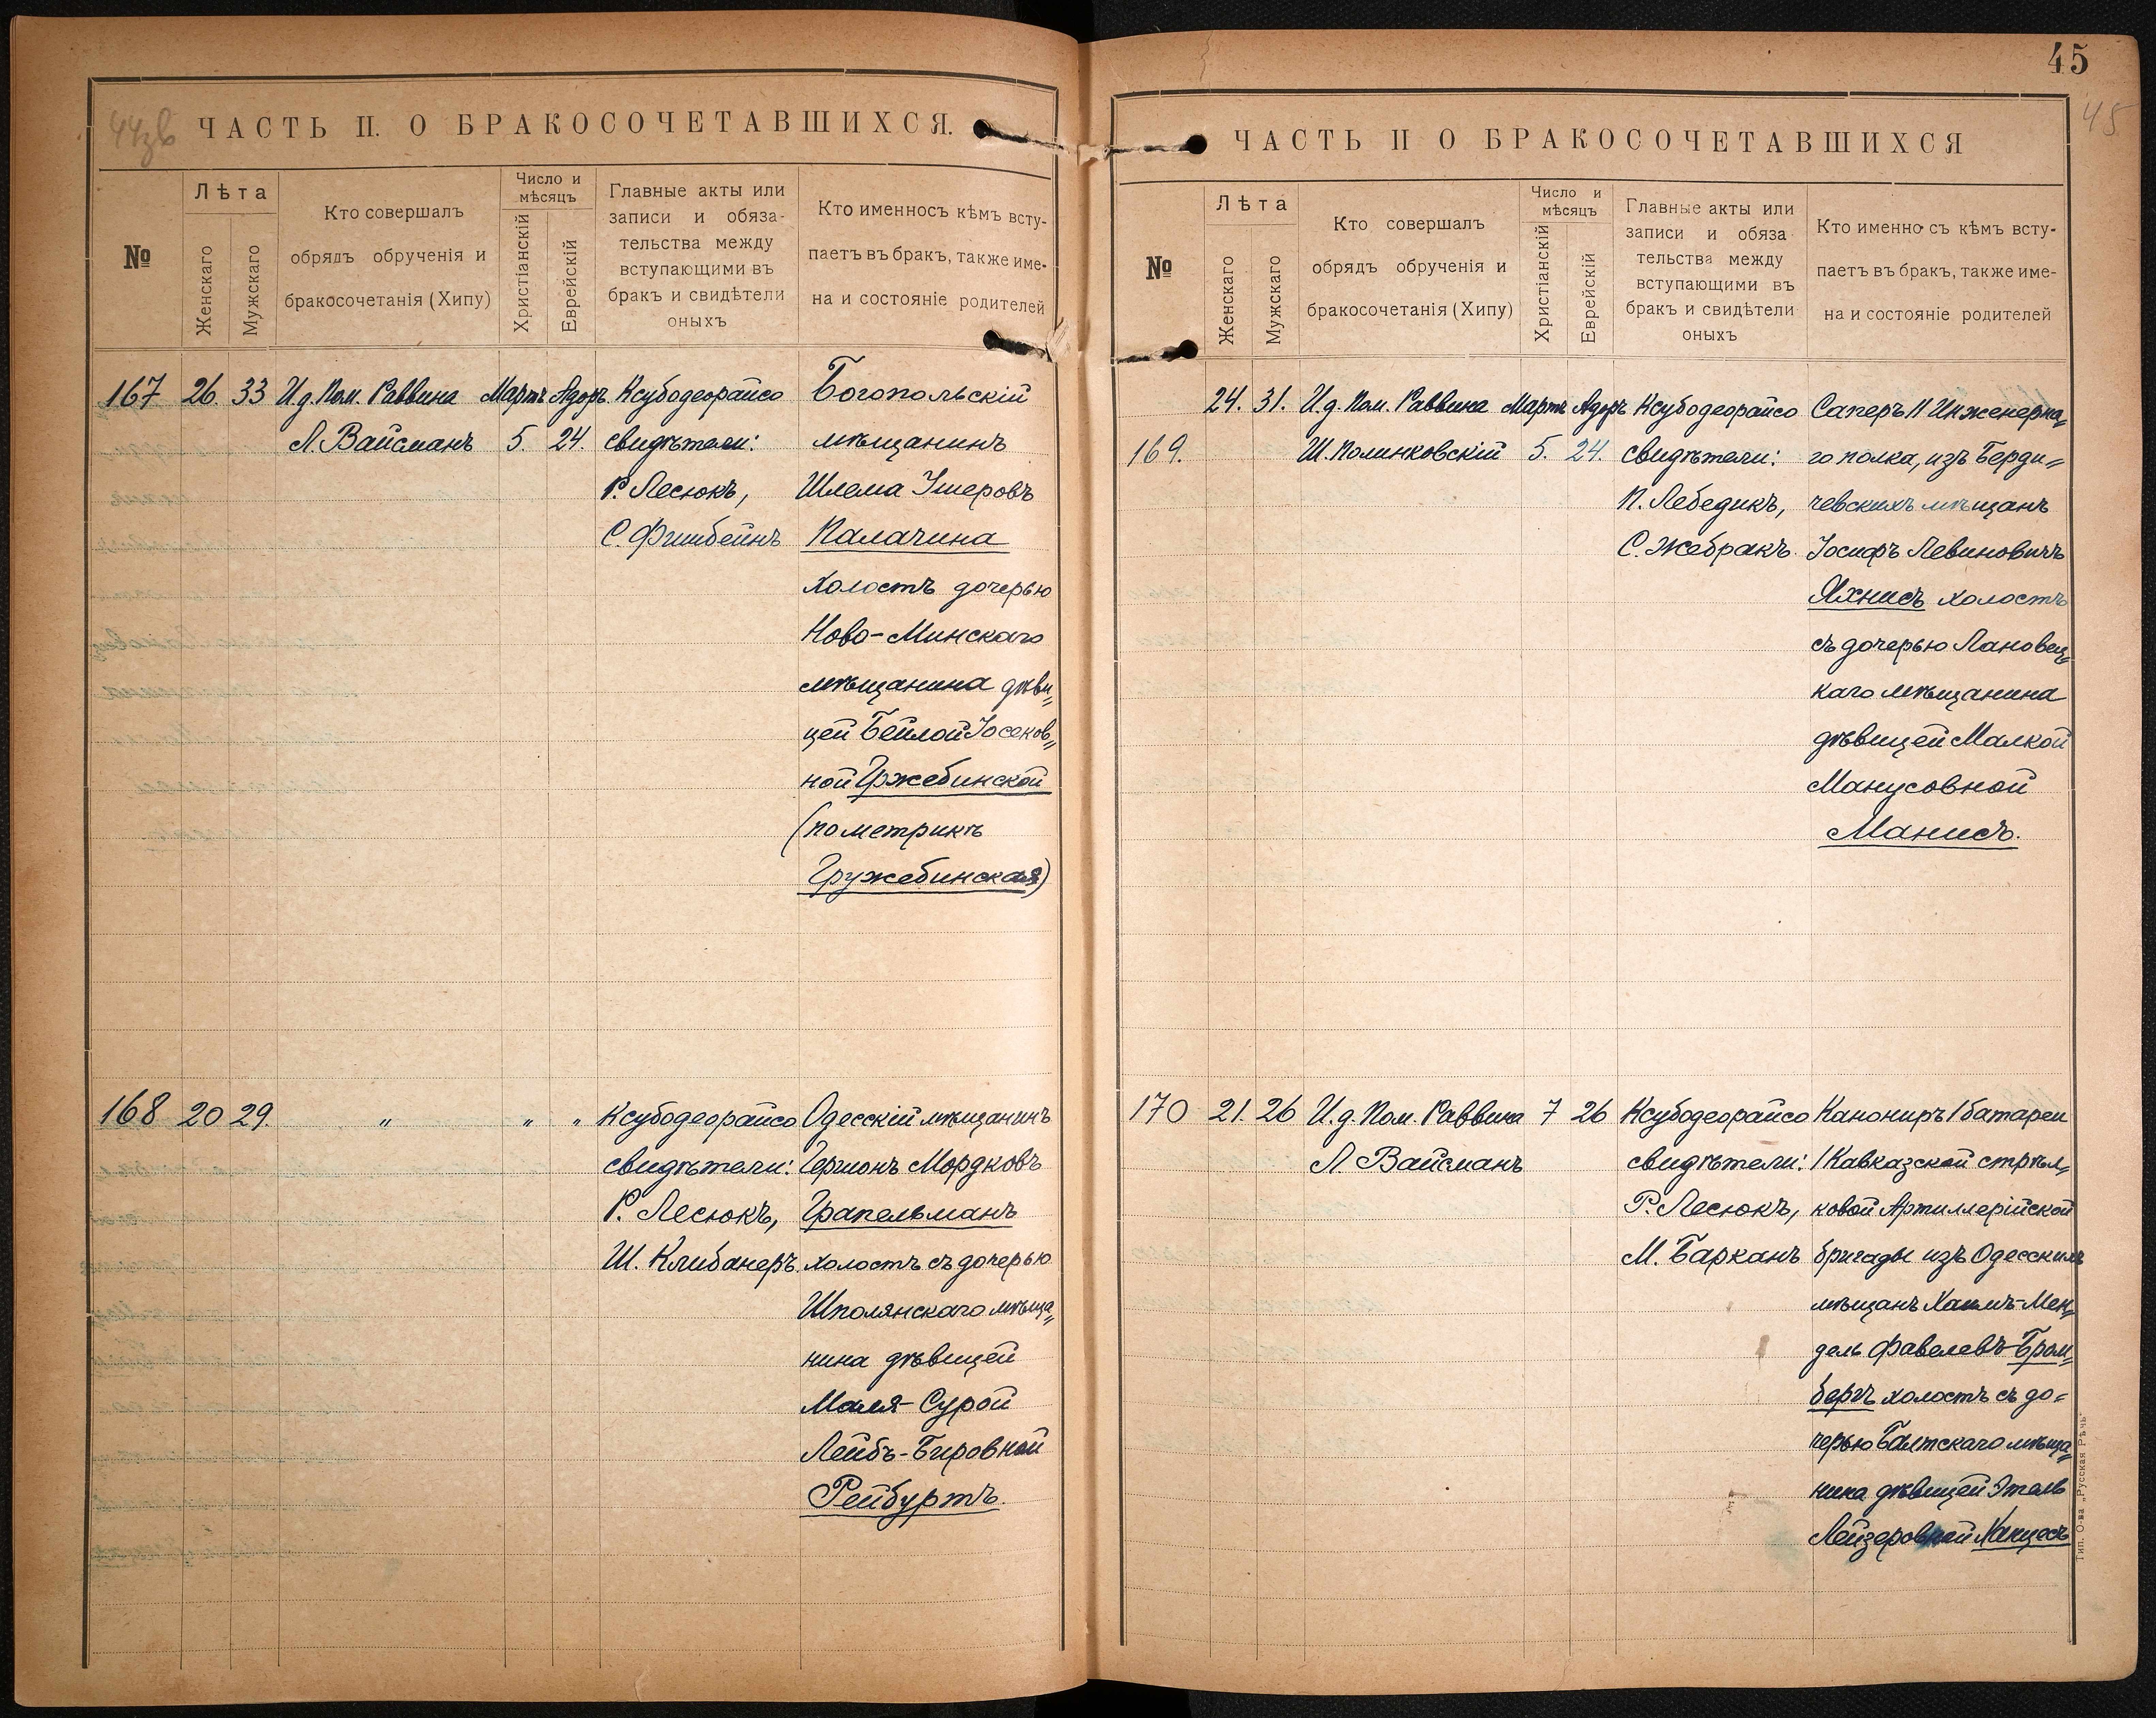 44зв
ЧАСТЬ II. О БРАКОСОЧЕТАВШИХСЯ.
№
Лѣта
Женскаго
Мужскаго
Кто совершалъ
обрядъ обрученія и
бракосочетанія (Хипу)
Число и
мѣсяцъ
Христіанскій
Еврейскій
Главные акты или
записи и обяза-
тельства между
вступающими въ
бракъ и свидѣтели
оныхъ
Кто именносъ кѣмъ всту-
паетъ въ бракъ, также име-
на и состояніе родителей
167 26. 33 И.д. Пом. Раввина Мартъ Адоръ Ксубодеорайсо Богопольскій
Л. Вайсманъ 5. 24. свидѣтели: мѣщанинъ
Р. Лесюкъ, Шлема Ушеровъ
С. Фишбейнъ Палачина
холостъ дочерью
Ново-Минскаго
мѣщанина дѣви„
цей Бейлой Іосеков„
ной Гржебинской
(по метрикѣ
Гружебинская)
168 20 29. „ „ „ Ксубодеорайсо Одесскій мѣщанинъ
свидѣтели: Гершонъ Мордковъ
Р. Лесюкъ, Грапельманъ
Ш. Клибанеръ. холостъ съ дочерью
Шполянскаго мѣща„
нина дѣвицей
Маля-Сурой
Лейбъ-Бировной
Рейбуртъ.
45
45
ЧАСТЬ II О БРАКОСОЧЕТАВШИХСЯ
№
Лѣта
Женскаго
Мужскаго
Кто совершалъ
обрядъ обрученія и
бракосочетанія (Хипу)
Число и
мѣсяцъ
Христіанскій
Еврейскій
Главные акты или
записи и обяза
тельства между
вступающими въ
бракъ и свидѣтели
оныхъ
Кто именно съ кѣмъ всту-
паетъ въ бракъ, также име-
на и состояніе родителей
24. 31. И.д. Пом. Раввина Мартъ Адоръ Ксубодеорайсо Саперъ 11 Инженерна„
169. Ш. Полинковскій 5. 24. свидѣтели: го полка, изъ Берди„
П. Лебедикъ, чевскихъ мѣщанъ
С. Жебракъ. Іосифъ Левиновичъ
Яхнисъ холостъ
съ дочерью Лановец„
каго мѣщанина
дѣвицей Малкой
Манусовной
Манисъ.
170 21. 26 И.д. Пом. Раввина 7 26 Ксубодеорайсо Канониръ 1 батареи
Л Вайсманъ свидѣтели: 1 Кавказской стрѣл„
Р. Лесюкъ, ковой Артиллерійской
М. Барканъ бригады изъ Одесскихъ
мѣщанъ Хаимъ-Мен„
дель Фавелевъ Бром„
бергъ холостъ съ до„
черью Балтскаго мѣща„
нина дѣвицей Этель
Лейзеровной
Тип. О-ва „Русская Рѣчь"